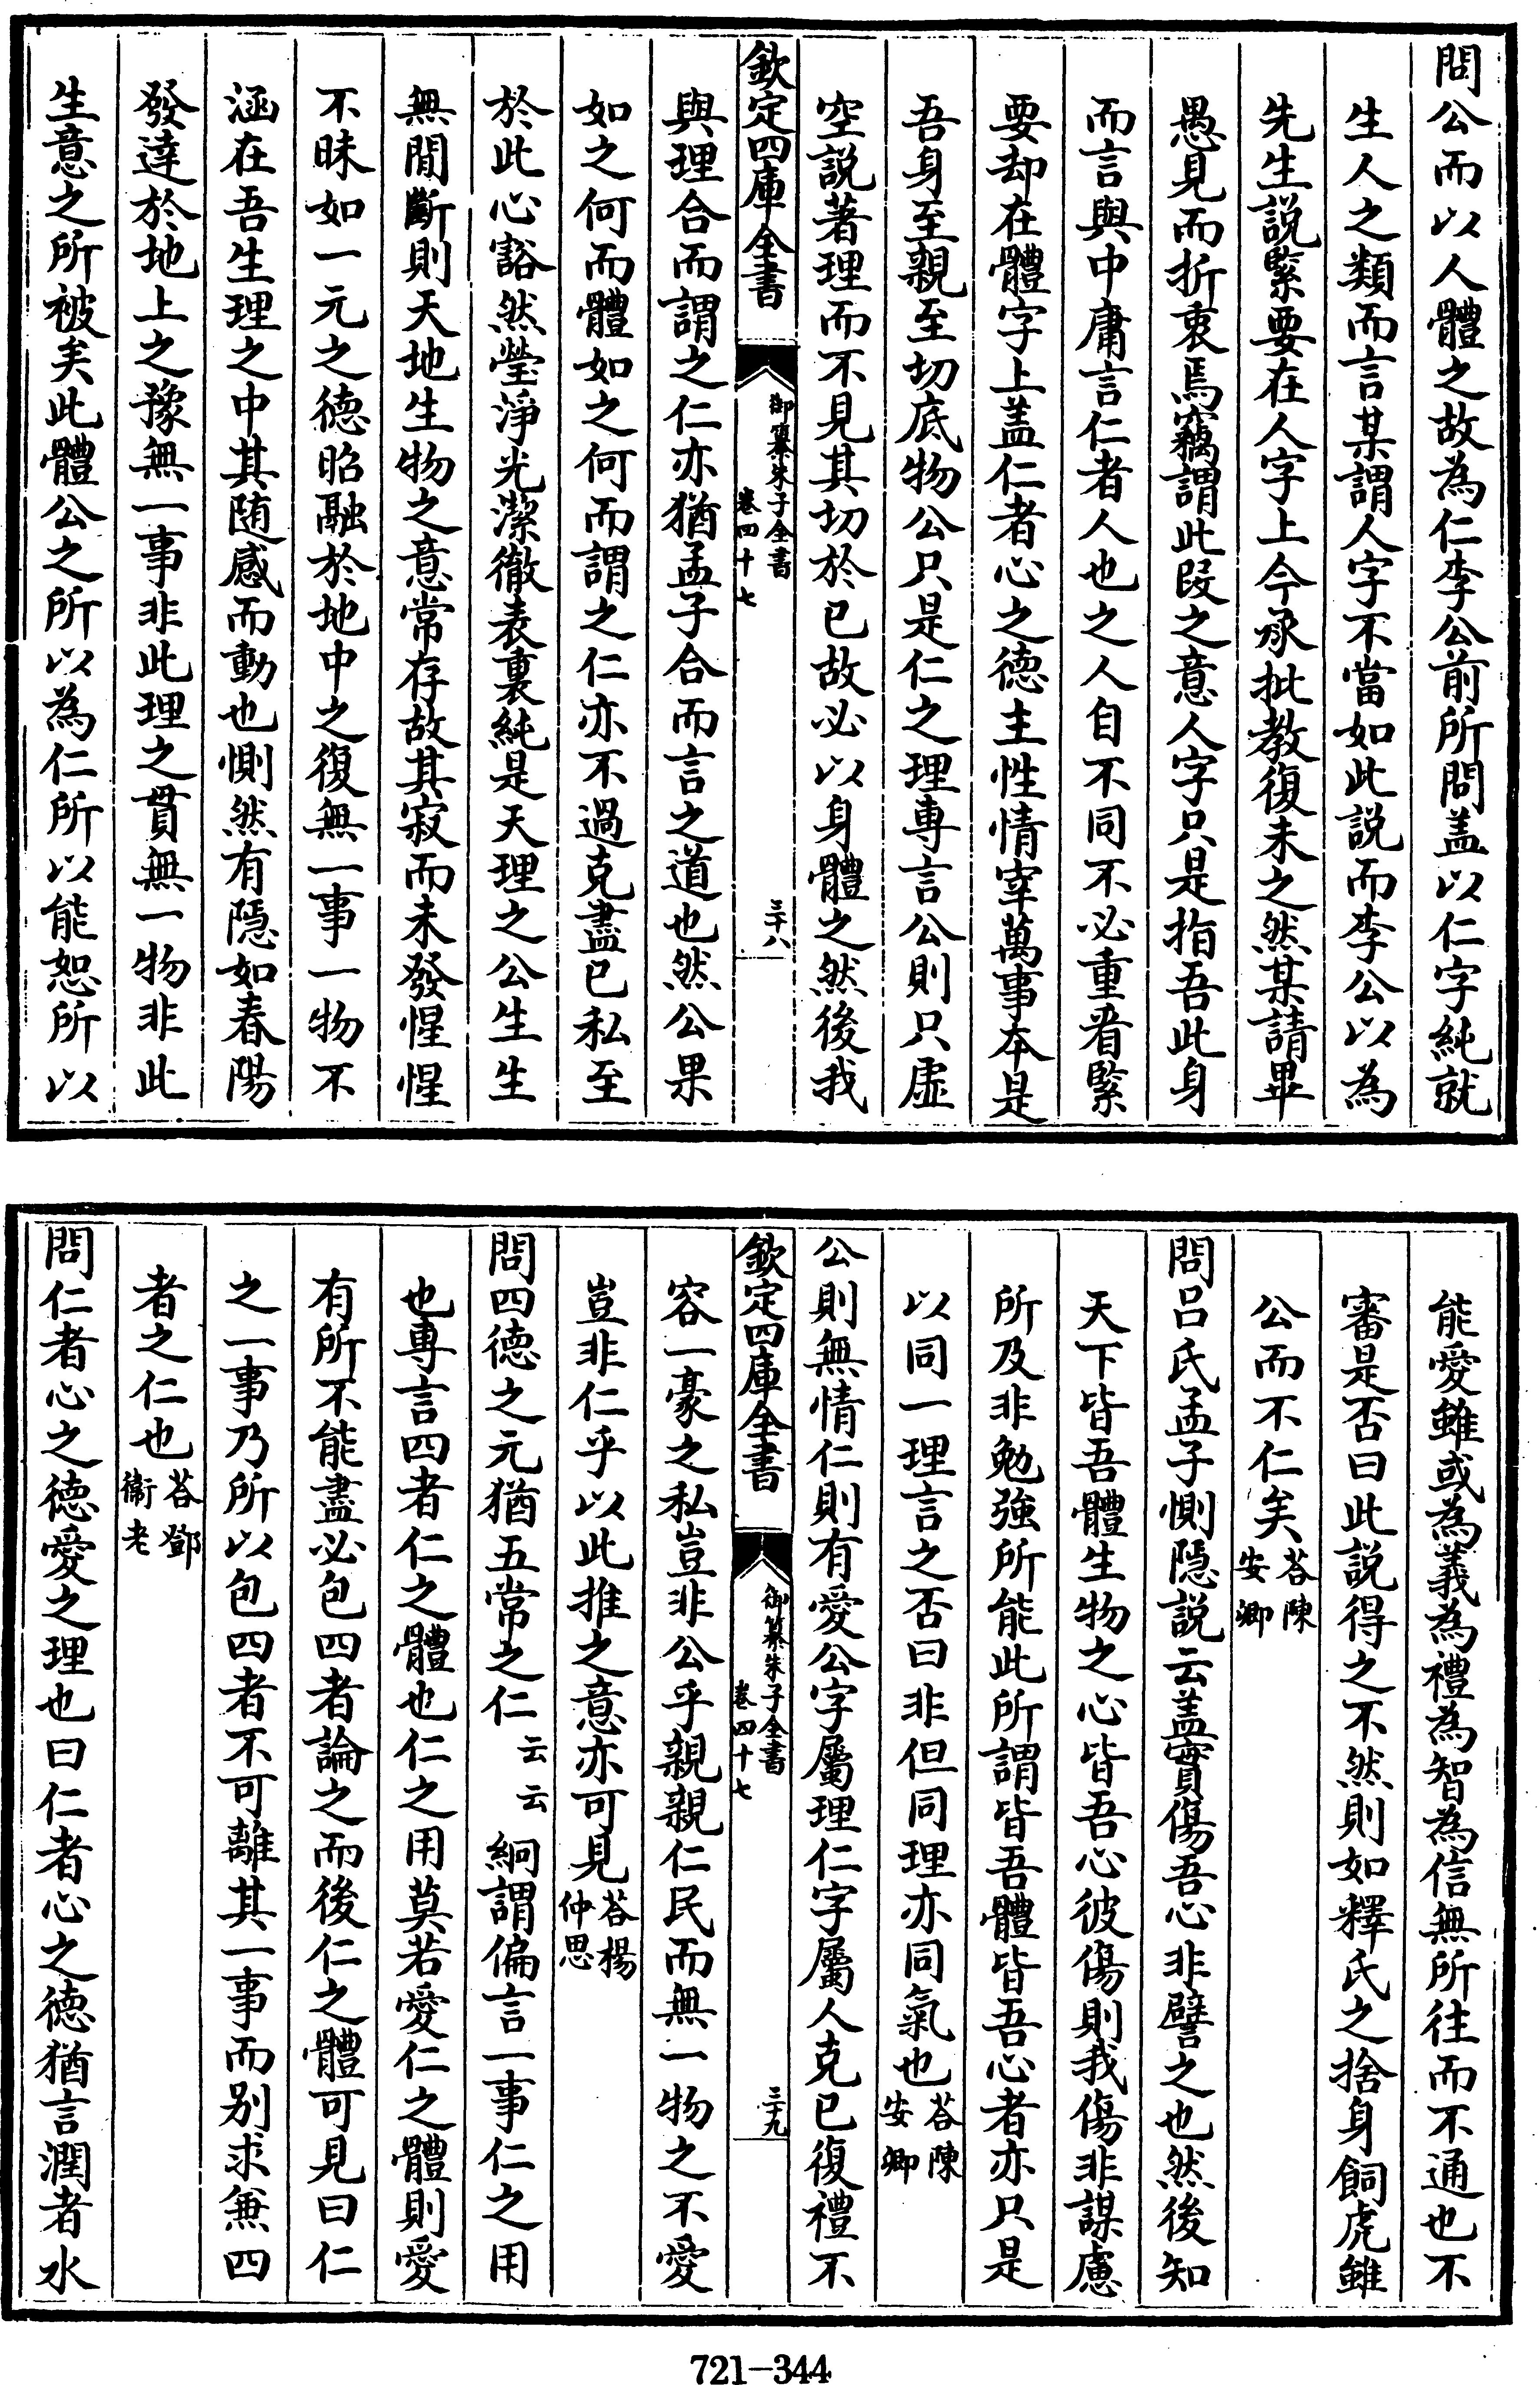 問公而以人體之故為仁李公前所問盖以仁字純就
生人之類而言某謂人字不當如此説而李公以為
先生説緊要在人字上今承批教復未之然某請畢
愚見而折衷焉竊謂此段之意人字只是指吾此身
而言與中庸言仁者人也之人自不同不必重看緊
要却在體字上盖仁者心之德主性情宰萬事本是
吾身至親至切底物公只是仁之理専言公則只虚
空説著理而不見其切於已故必以身體之然後我
欽定四庫全書
御纂朱子全書
卷四十七
三十八
與理合而謂之仁亦猶孟子合而言之道也然公果
如之何而體如之何而謂之仁亦不過克盡已私至
於此心豁然瑩淨光潔徹表裏純是天理之公生生
無間斷則天地生物之意常存故其寂而未發惺惺
不昧如一元之德昭融於地中之復無一事一物不
涵在吾生理之中其随感而動也惻然有隠如春陽
發達於地上之豫無一事非此理之貫無一物非此
生意之所被矣此體公之所以為仁所以能恕所以
能愛雖或為義為禮為智為信無所往而不通也不
審是否曰此説得之不然則如釋氏之捨身飼虎雖
公而不仁矣答陳安卿
問吕氏孟子惻隠説云盖實傷吾心非譬之也然後知
天下皆吾體生物之心皆吾心彼傷則我傷非謀慮
所及非勉強所能此所謂皆吾體皆吾心者亦只是
以同一理言之否曰非但同理亦同氣也答陳安卿
公則無情仁則有愛公字屬理仁字屬人克已復禮不
欽定四庫全書
御纂朱子全書
卷四十七
三十九
容一豪之私豈非公乎親親仁民而無一物之不愛
豈非仁乎以此推之意亦可見答楊仲思
問四德之元猶五常之仁云云絅謂偏言一事仁之用
也専言四者仁之體也仁之用莫若愛仁之體則愛
有所不能盡必包四者論之而後仁之體可見曰仁
之一事乃所以包四者不可離其一事而别求兼四
者之仁也答鄧衞老
問仁者心之德愛之理也曰仁者心之德猶言潤者水
721-344